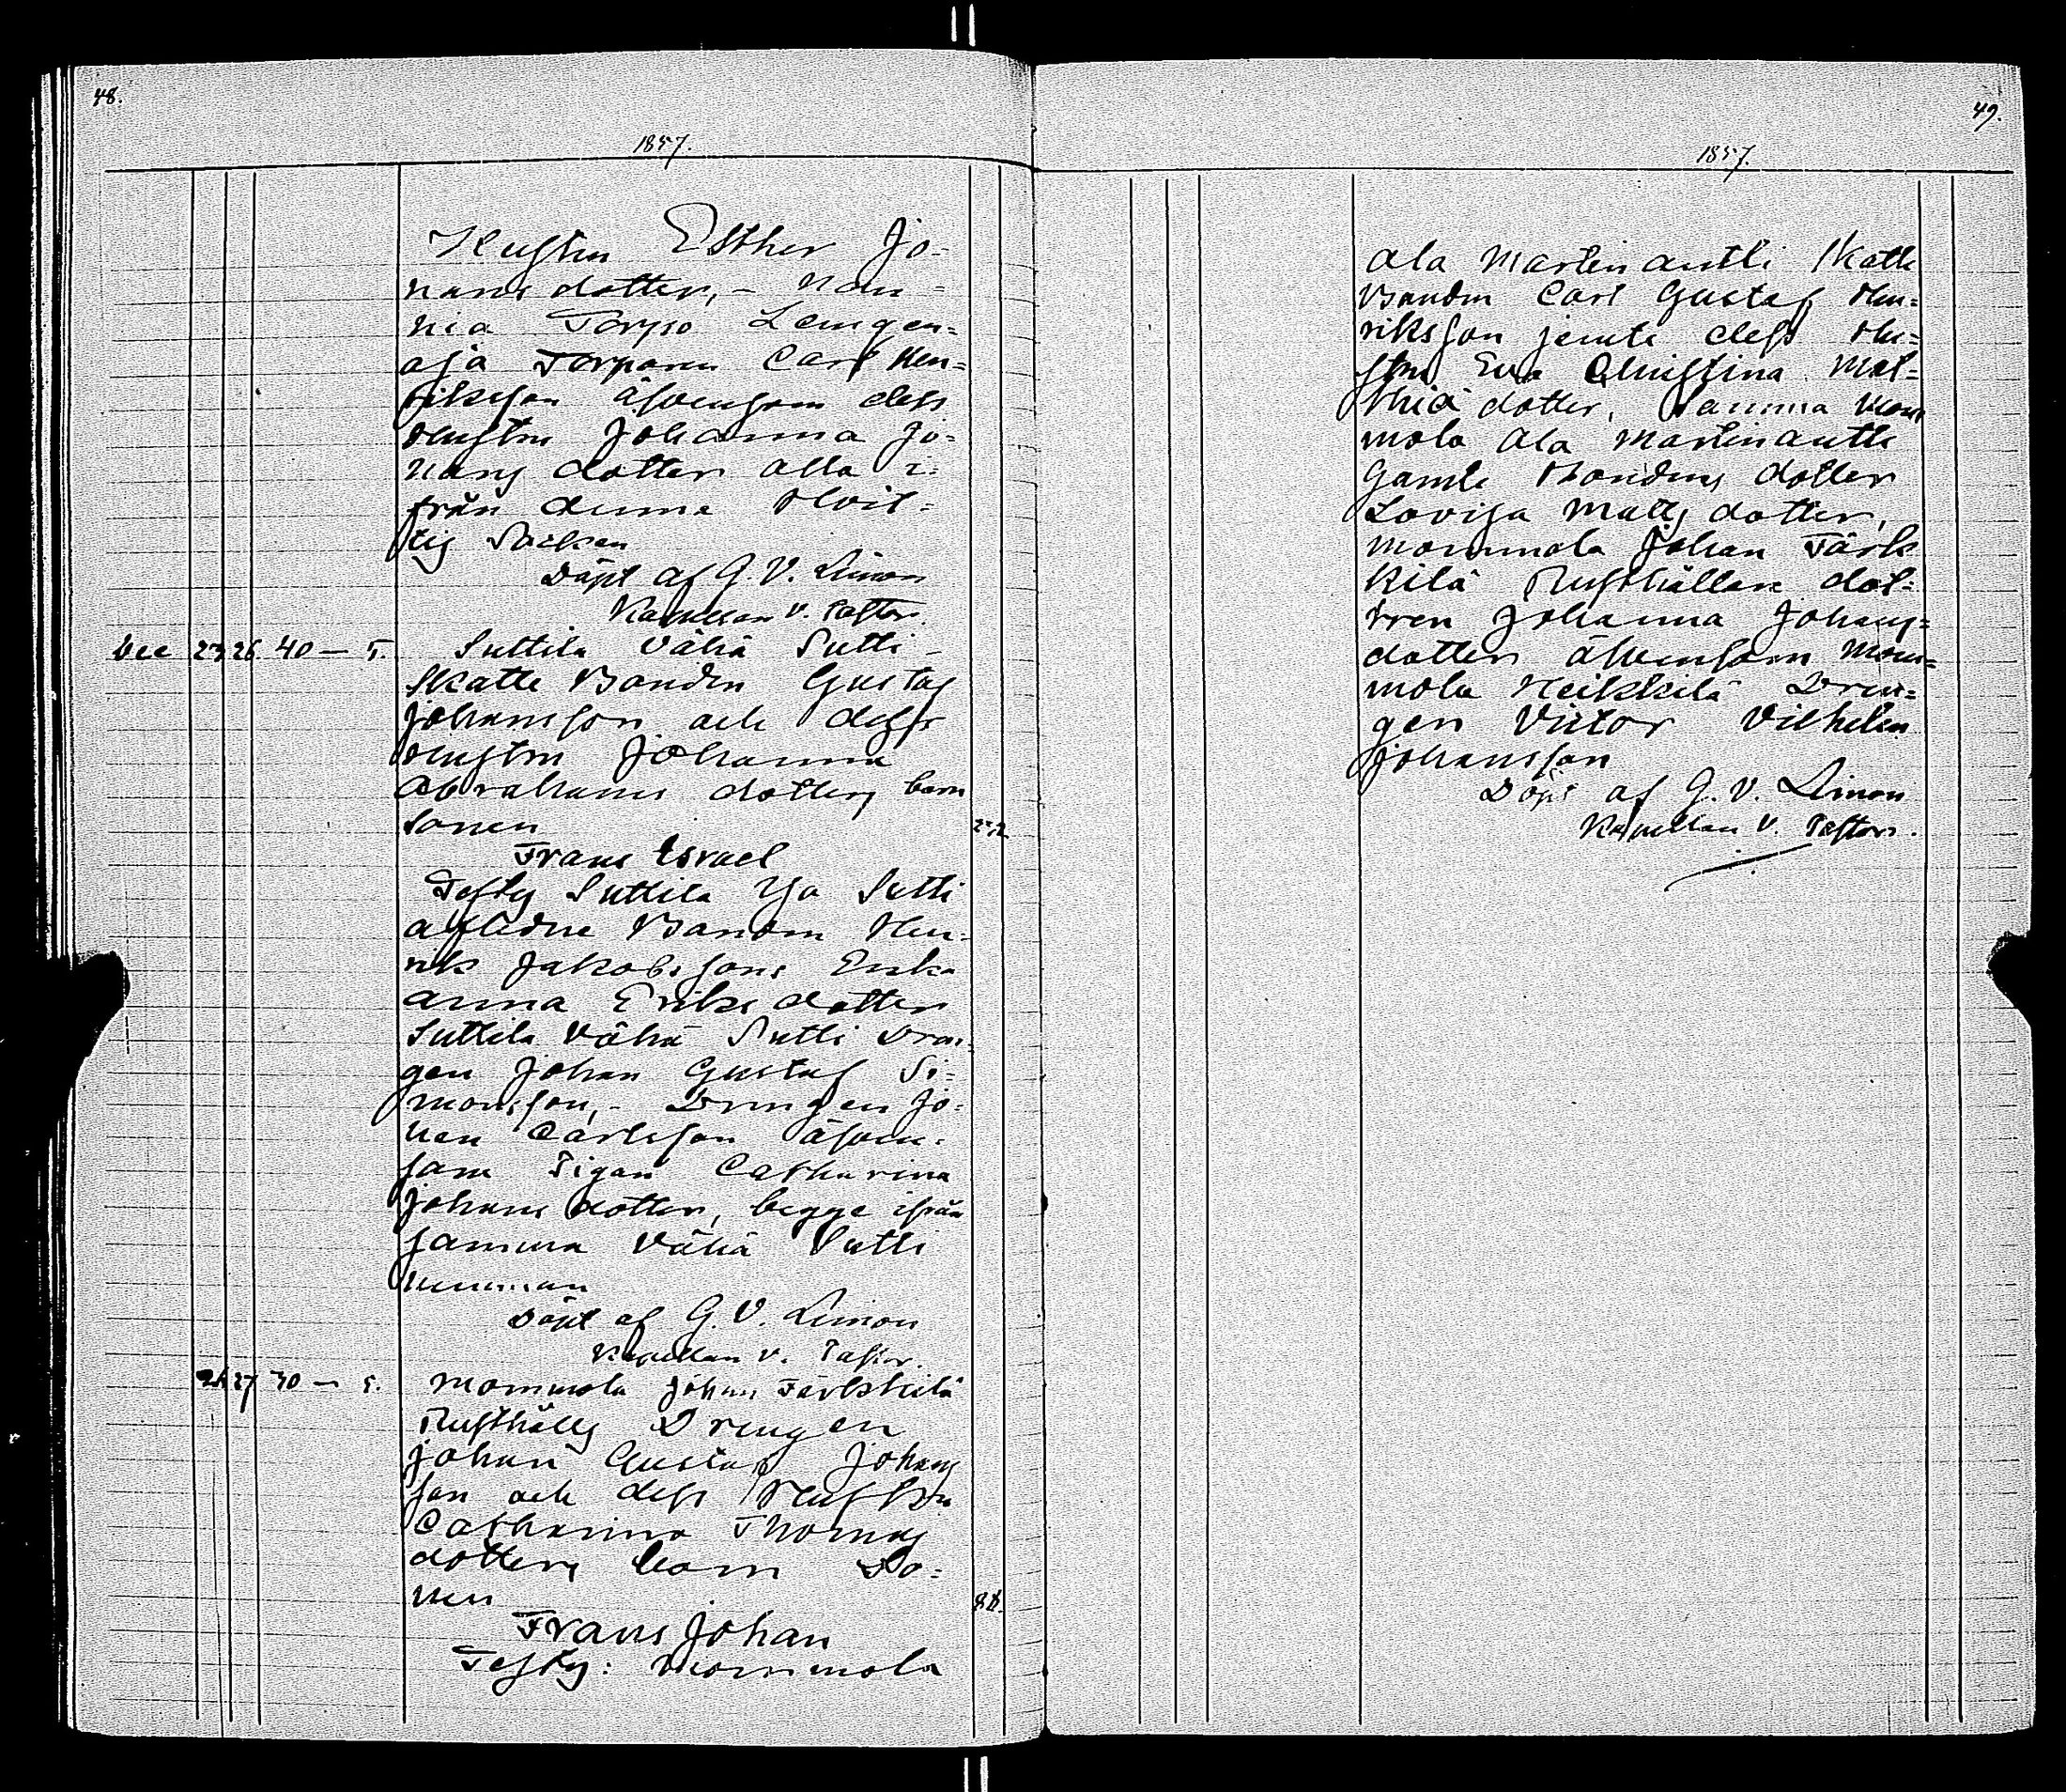 48.
1857.
Hustru Esther Jo-
hansdotter, - Nau-
hia Torpo
aja Torparen Carl Hen-
riksson äfvensom dess
Hustru Johanna Jo-
hans dotter alla i-
från denna
Socken
Döpt af G. V. Limon
Kapellan v. Pastor.
Dec 23 26 40 — 5. Suttila Vähä Sutti
Skatte Bonden Gustaf
Johansson och dess
Hustru Johanna
Abrahams dotters barn
Sonen 232
Frans Israel
Testes Suttila Yso Sutti
aflidne Bonden Hen-
rik Jakobssons Enka
Anna Eriks dotter
Suttila Vähä Sutti Dren-
gen Johan Gustaf Si-
monsson, - Drengen Jo-
han Carlsson äfven-
som Pigan Catharina
Johans dotter, begge ifrån
samma Vähä Sutti
hemman
Döpt af G. V. Limon
Kapellan v. Pastor.
26 27 30 — 5. Mommola Johan Tärkkilä
Rusthålls Drengen
Johan Gustaf Johans
son och dess Hustru
Catharina Thomas
dotters barn So-
nen 88.
Frans Johan
Testes: Mommola
49.
1857.
Ala Martin antti Skatte
Bonden Carl Gustaf Hen-
riksson jemte dess Hu-
stru Eva Christina Mat-
thiä dotter, Samma Mom
mola Ala Martin antti
Gamle Bondens dotter
Lovisa Matts dotter,
Mommola Johan Tärk
kilä Rusthållare dot-
tren Johanna Johans-
dotter äfvensom Mom-
mola Heikkilä Dren-
gen Victor Vilhelm
Johansson
Döpt af G. V. Limon
Kapellan V. Pastor.